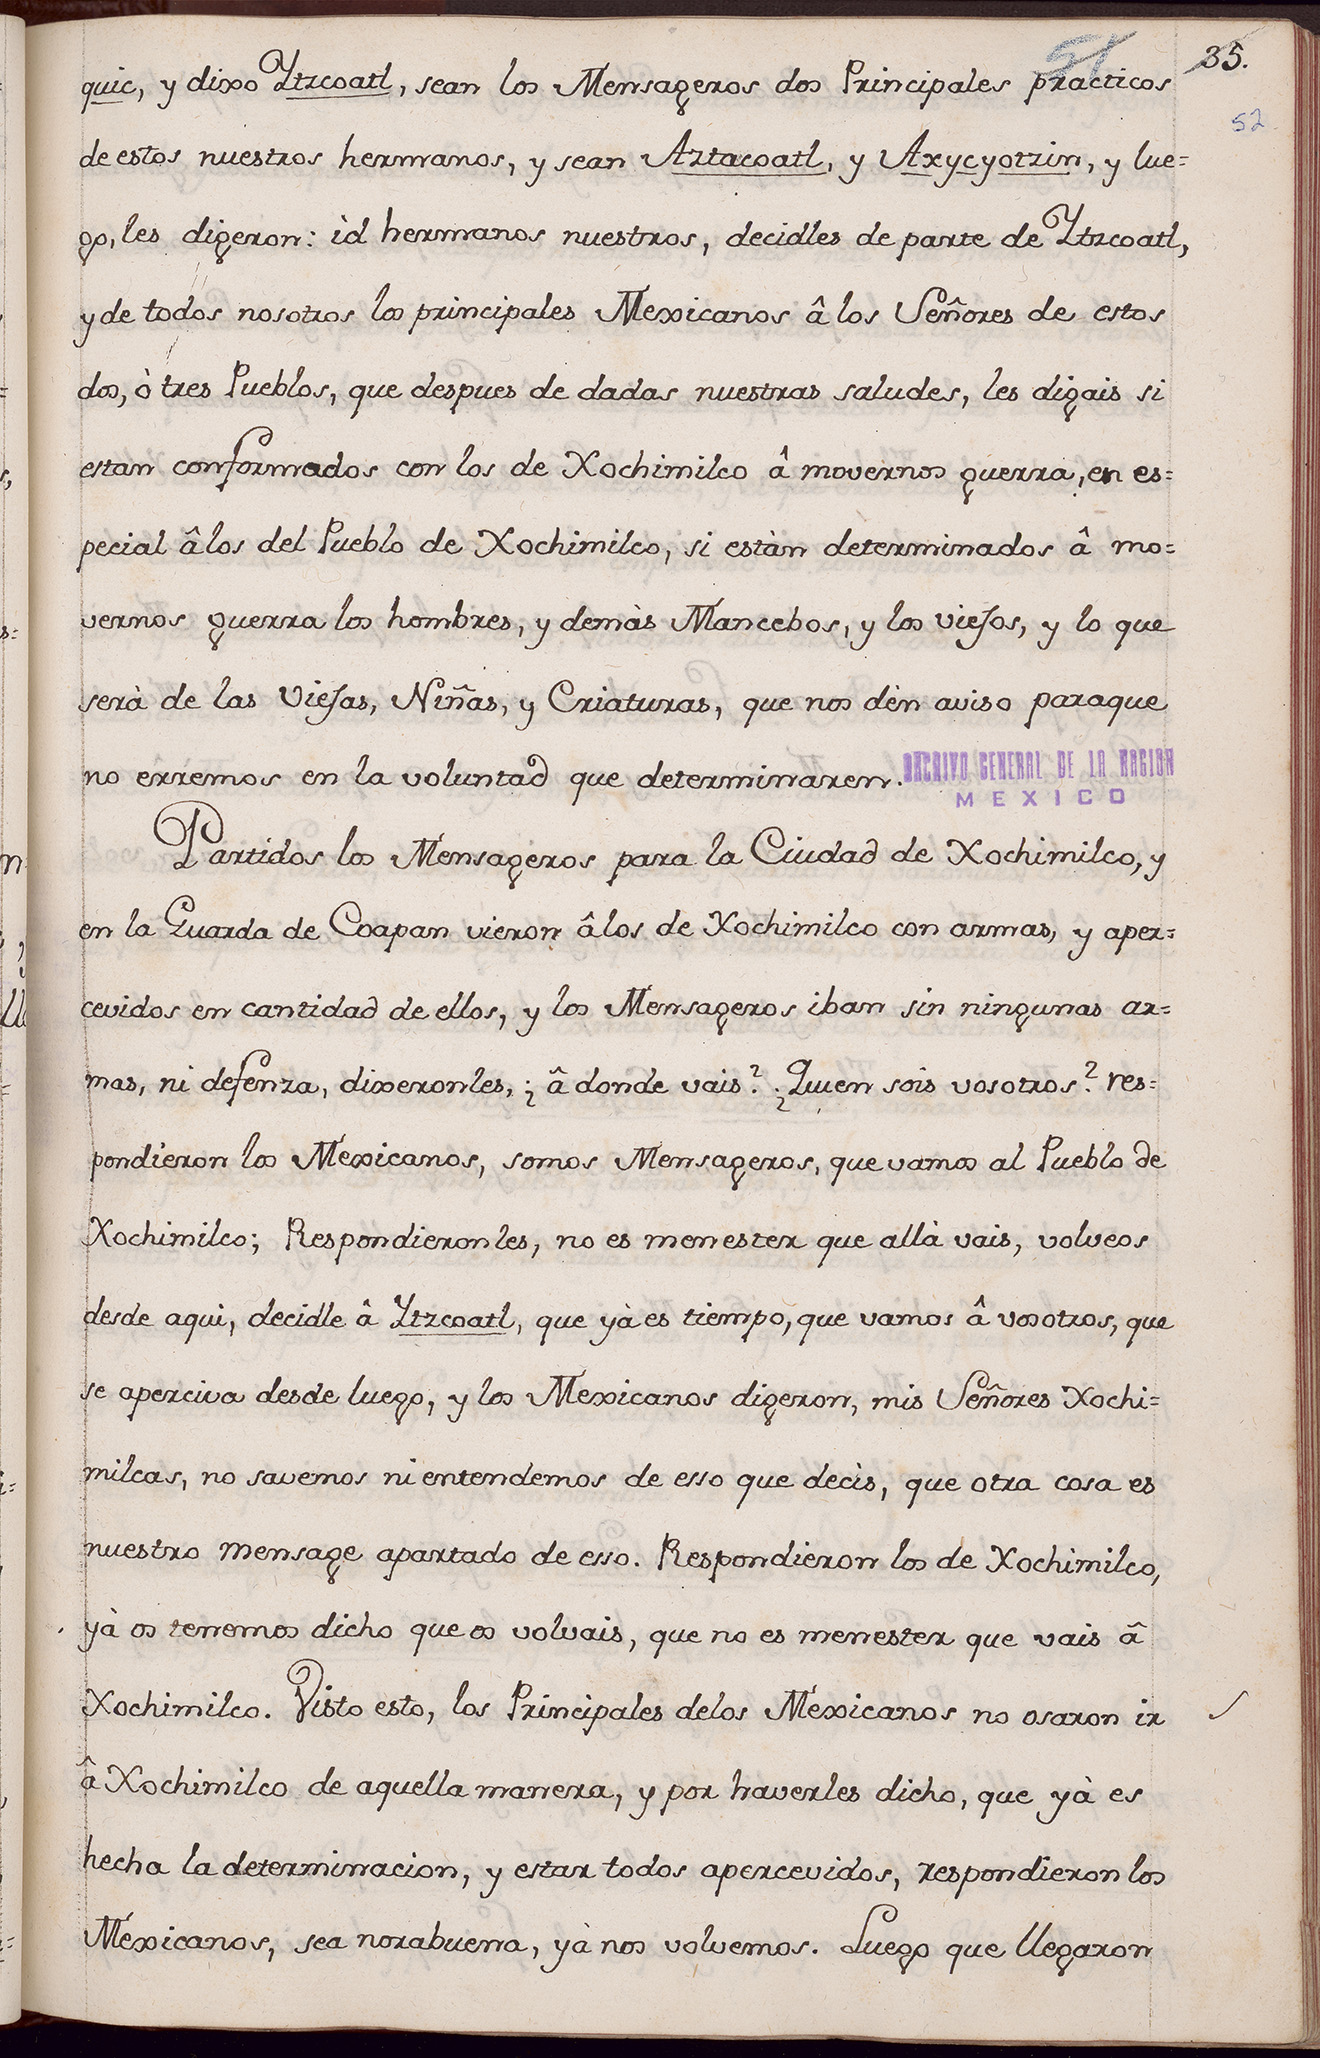 51 35.
52
quic, y dixo Ytzcoatl, sean los Mensageros dos Principales practicos
de estos nuestros hermanos, y sean Aztacoatl, y Axycyotzin, y lue=
go, les digeron: id hermanos nuestros, decidles de parte de Ytzcoatl,
y de todos nosotros los principales Mexicanos â los Señores de estos
dos, ò tres Pueblos, que despues de dadas nuestras saludes, les digais si
estan conformados con los de Xochimilco â movernos guerra, en es=
pecial â los del Pueblo de Xochimilco, si estàn determinados â mo=
vernos guerra los hombres, y demàs Mancebos, y los viejos, y lo que
serà de las Viejas, Niñas, y Criaturas, que nos dèn aviso paraque
no erremos en la voluntad que determinaren.
ARCHIVO GENERAL DE LA NACION
MEXICO
Partidos los Mensageros para la Ciudad de Xochimilco, y
en la Guarda de Coapan vieron â los de Xochimilco con armas, y aper=
cevidos en cantidad de ellos, y los Mensageros iban sin ningunas ar=
mas, ni defenza, dixeronles, ¿ â donde vais? ¿Quien sois vosotros? res=
pondieron los Mexicanos, somos Mensageros, que vamos al Pueblo de
Xochimilco; Respondieronles, no es menester que allà vais, volveos
desde aqui, decidle â Ytzcoatl, que yà es tiempo, que vamos â vosotros, que
se aperciva desde luego, y los Mexicanos digeron, mis Señores Xochi=
milcas, no savemos ni entendemos de esso que decìs, que otra cosa es
nuestro mensage apartado de esso. Respondieron los de Xochimilco,
yà os tenemos dicho que os volvais, que no es menester que vais â
Xochimilco. Visto esto, los Principales delos Mexicanos no osaron ir
â Xochimilco de aquella manera, y por haverles dicho, que yà es
hecha la determinacion, y estar todos apercevidos, respondieron los
Mexicanos, sea norabuena, yà nos volvemos. Luego que llegaron